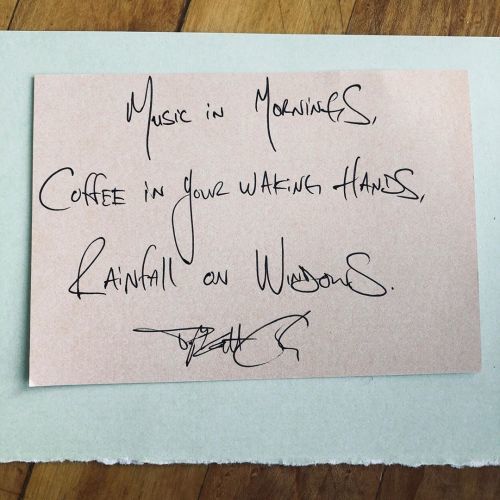 Music in Mornings,
Coffee in your waking hands,
Rainfall on Windows.